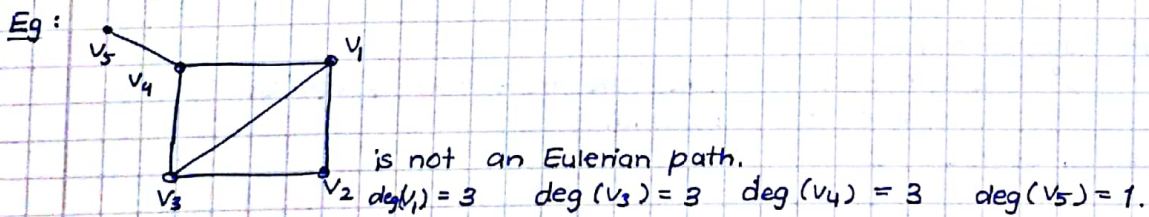 Eg :
V₅
V₁
V₄
is not an Eulerian path.
V₃
V₂ deg(V₁) = 3 deg (V₃) = 3 deg (V₄) = 3 deg (V₅) = 1.